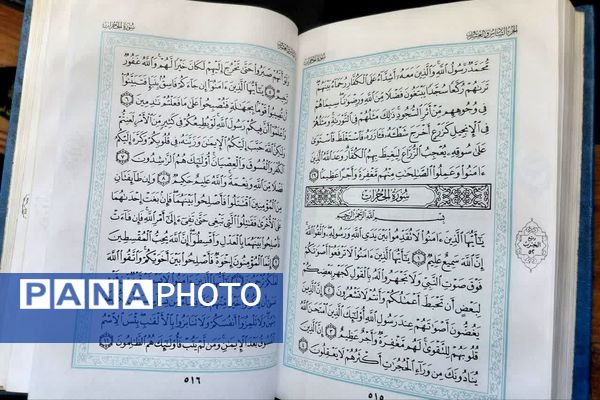 الجزء السادس والعشرون
سورة الحجرات
مُّحَمَّدٌ رَّسُولُ ٱللَّهِ وَٱلَّذِينَ مَعَهُۥٓ أَشِدَّآءُ عَلَى ٱلْكُفَّارِ رُحَمَآءُ بَيْنَهُمْ
تَرَىٰهُمْ رُكَّعًا سُجَّدًا يَبْتَغُونَ فَضْلًا مِّنَ ٱللَّهِ وَرِضْوَٰنًا سِيمَاهُمْ
فِى وُجُوهِهِم مِّنْ أَثَرِ ٱلسُّجُودِ ذَٰلِكَ مَثَلُهُمْ فِى ٱلتَّوْرَىٰةِ وَمَثَلُهُمْ
فِى ٱلْإِنجِيلِ كَزَرْعٍ أَخْرَجَ شَطْـَٔهُۥ فَـَٔازَرَهُۥ فَٱسْتَغْلَظَ فَٱسْتَوَىٰ
عَلَىٰ سُوقِهِۦ يُعْجِبُ ٱلزُّرَّاعَ لِيَغِيظَ بِهِمُ ٱلْكُفَّارَ وَعَدَ ٱللَّهُ ٱلَّذِينَ
ءَامَنُوا۟ وَعَمِلُوا۟ ٱلصَّٰلِحَٰتِ مِنْهُم مَّغْفِرَةً وَأَجْرًا عَظِيمًۢا ٢٩
سُورَةُ الحُجُرَاتِ
بِسْمِ ٱللَّهِ ٱلرَّحْمَٰنِ ٱلرَّحِيمِ
يَٰٓأَيُّهَا ٱلَّذِينَ ءَامَنُوا۟ لَا تُقَدِّمُوا۟ بَيْنَ يَدَىِ ٱللَّهِ وَرَسُولِهِۦ وَٱتَّقُوا۟ ٱللَّهَ
إِنَّ ٱللَّهَ سَمِيعٌ عَلِيمٌ ١ يَٰٓأَيُّهَا ٱلَّذِينَ ءَامَنُوا۟ لَا تَرْفَعُوٓا۟ أَصْوَٰتَكُمْ
فَوْقَ صَوْتِ ٱلنَّبِىِّ وَلَا تَجْهَرُوا۟ لَهُۥ بِٱلْقَوْلِ كَجَهْرِ بَعْضِكُمْ
لِبَعْضٍ أَن تَحْبَطَ أَعْمَٰلُكُمْ وَأَنتُمْ لَا تَشْعُرُونَ ٢ إِنَّ ٱلَّذِينَ
يَغُضُّونَ أَصْوَٰتَهُمْ عِندَ رَسُولِ ٱللَّهِ أُو۟لَٰٓئِكَ ٱلَّذِينَ ٱمْتَحَنَ ٱللَّهُ
قُلُوبَهُمْ لِلتَّقْوَىٰ لَهُم مَّغْفِرَةٌ وَأَجْرٌ عَظِيمٌ ٣ إِنَّ ٱلَّذِينَ
يُنَادُونَكَ مِن وَرَآءِ ٱلْحُجُرَٰتِ أَكْثَرُهُمْ لَا يَعْقِلُونَ ٤
٥١٥
سورة الحجرات
وَلَوْ أَنَّهُمْ صَبَرُوا۟ حَتَّىٰ تَخْرُجَ إِلَيْهِمْ لَكَانَ خَيْرًا لَّهُمْ وَٱللَّهُ غَفُورٌ
رَّحِيمٌ ٥ يَٰٓأَيُّهَا ٱلَّذِينَ ءَامَنُوٓا۟ إِن جَآءَكُمْ فَاسِقٌۢ بِنَبَإٍ فَتَبَيَّنُوٓا۟
أَن تُصِيبُوا۟ قَوْمًۢا بِجَهَٰلَةٍ فَتُصْبِحُوا۟ عَلَىٰ مَا فَعَلْتُمْ نَٰدِمِينَ ٦
وَٱعْلَمُوٓا۟ أَنَّ فِيكُمْ رَسُولَ ٱللَّهِ لَوْ يُطِيعُكُمْ فِى كَثِيرٍ مِّنَ ٱلْأَمْرِ لَعَنِتُّمْ
وَلَٰكِنَّ ٱللَّهَ حَبَّبَ إِلَيْكُمُ ٱلْإِيمَٰنَ وَزَيَّنَهُۥ فِى قُلُوبِكُمْ وَكَرَّهَ إِلَيْكُمُ
ٱلْكُفْرَ وَٱلْفُسُوقَ وَٱلْعِصْيَانَ أُو۟لَٰٓئِكَ هُمُ ٱلرَّٰشِدُونَ ٧
فَضْلًا مِّنَ ٱللَّهِ وَنِعْمَةً وَٱللَّهُ عَلِيمٌ حَكِيمٌ ٨ وَإِن طَآئِفَتَانِ
مِنَ ٱلْمُؤْمِنِينَ ٱقْتَتَلُوا۟ فَأَصْلِحُوا۟ بَيْنَهُمَا فَإِنۢ بَغَتْ إِحْدَىٰهُمَا
عَلَى ٱلْأُخْرَىٰ فَقَٰتِلُوا۟ ٱلَّتِى تَبْغِى حَتَّىٰ تَفِىٓءَ إِلَىٰٓ أَمْرِ ٱللَّهِ فَإِن فَآءَتْ
فَأَصْلِحُوا۟ بَيْنَهُمَا بِٱلْعَدْلِ وَأَقْسِطُوٓا۟ إِنَّ ٱللَّهَ يُحِبُّ ٱلْمُقْسِطِينَ
٩ إِنَّمَا ٱلْمُؤْمِنُونَ إِخْوَةٌ فَأَصْلِحُوا۟ بَيْنَ أَخَوَيْكُمْ وَٱتَّقُوا۟ ٱللَّهَ
PANAPHOTO
وَلَا تَلْمِزُوٓا۟ أَنفُسَكُمْ وَلَا تَنَابَزُوا۟ بِٱلْأَلْقَٰبِ بِئْسَ ٱلِٱسْمُ
ٱلْفُسُوقُ بَعْدَ ٱلْإِيمَٰنِ وَمَن لَّمْ يَتُبْ فَأُو۟لَٰٓئِكَ هُمُ ٱلظَّٰلِمُونَ ١١
٥١٦